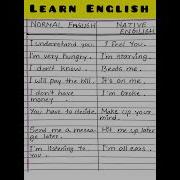 LEARN ENGLISH
NORMAL ENGLISH NATIVE ENGLISH
I understand you. I feel you.
I'm very hungry. I'm starving.
I don't know. Beats me.
I will pay the bill. It's on me.
I don't have money. I'm broke.
You have to decide. Make up your mind.
Send me a messa
ge later. Hit me up later
I'm listening to you. I'm all ears.